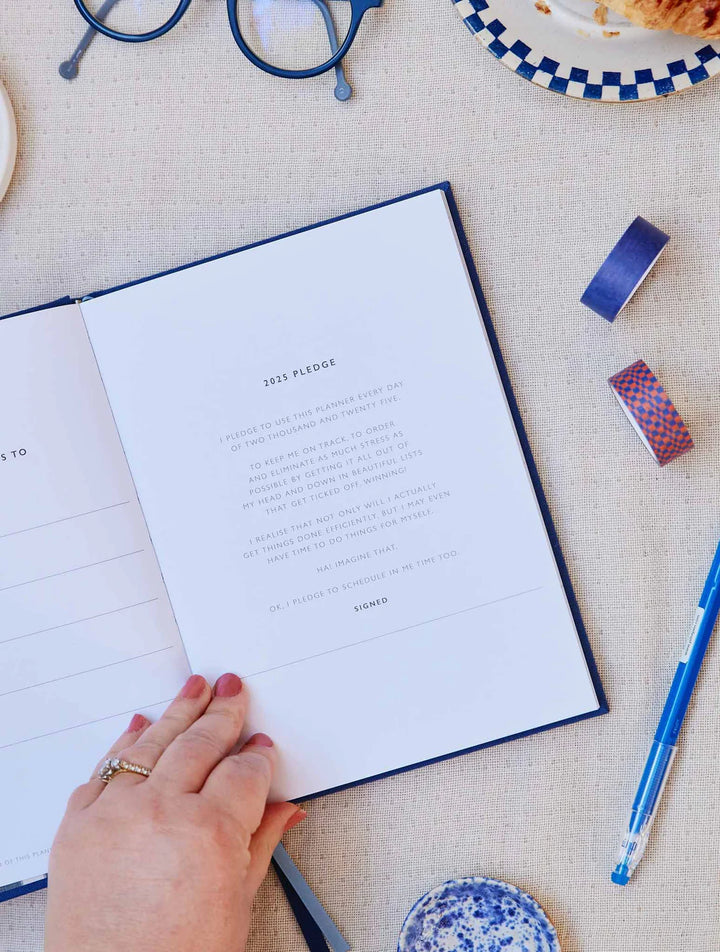 S TO
OF THIS PLANN
2025 PLEDGE
I PLEDGE TO USE THIS PLANNER EVERY DAY
OF TWO THOUSAND AND TWENTY FIVE.
TO KEEP ME ON TRACK, TO ORDER
AND ELIMINATE AS MUCH STRESS AS
POSSIBLE BY GETTING IT ALL OUT OF
MY HEAD AND DOWN IN BEAUTIFUL LISTS
THAT GET TICKED OFF. WINNING!
I REALISE THAT NOT ONLY WILL I ACTUALLY
GET THINGS DONE EFFICIENTLY, BUT I MAY EVEN
HAVE TIME TO DO THINGS FOR MYSELF.
HA! IMAGINE THAT.
OK, I PLEDGE TO SCHEDULE IN ME TIME TOO.
SIGNED